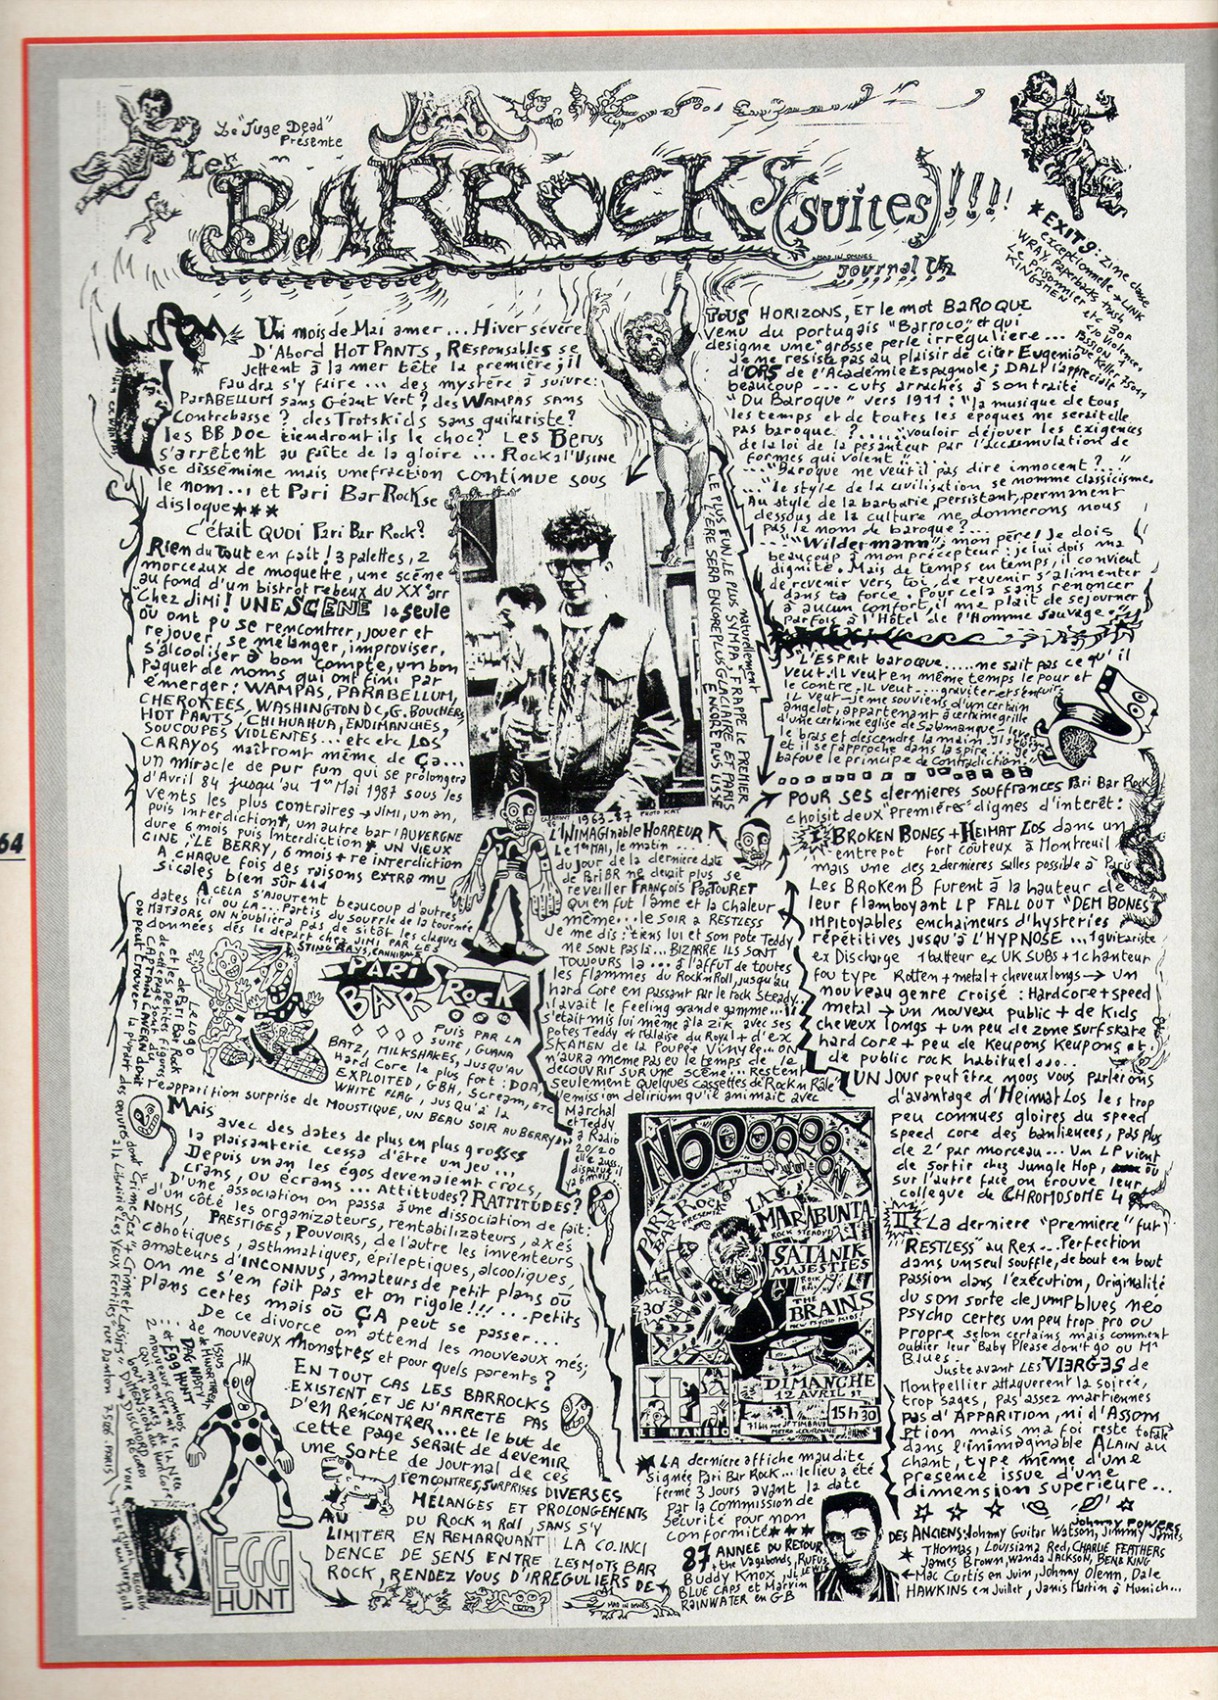 Le "Juge Dead"
Présente
Les
BARROCKS (suites)!!!!
JOURNAL N°2
* EXIT 9: zine classe
exceptionnelle → LINK
WRAY, Paperbacks, Truss
Le prisonnier
KINGSMEN etc 30F
c/o Violences
Passion
rue Keller 75011
Un mois de Mai amer... Hiver sévère
D'Abord HOT PANTS, RESponsables se
jettent à la mer tête la première; il
faudra s'y faire... des mystère à suivre:
ParABELLUM sans Géant Vert? des WAMPAS sans
Contrebasse? des Trotskids sans guitariste?
les BB Doc tiendront ils le choc? LES Bérus
s'arrêtent au faîte de la gloire... Rock à l'Usine
se dissémine mais une fraction continue sous
le nom... et Pari Bar Rock se
disloque***
C'était QUOI Pari Bar Rock?
Rien du Tout en fait! 3 palettes, 2
morceaux de moquette, une scène
au fond d'un bistrot rebeux du XX°arr
"Chez JiMi! UNE SCENE la seule
où ont pu se rencontrer, jouer et
rejouer, se mélanger, improviser,
s'alcooliser à bon compte, un bon
paquet de noms qui ont fini par
émerger: WAMPAS, PARABELLUM,
CHEROKEES, WASHINGTON DC, G. BOUCHERS
HOT PANTS, CHIHUAHUA, ENDIMANCHES,
SOUCOUPES VIOLENTES... etc etc LOS
CARAYOS naîtront même de Ça...
un miracle de pur fun qui se prolongera
d'Avril 84 jusqu'au 1er Mai 1987 sous les
vents les plus contraires → JIMI, un an,
puis Interdiction, un autre bar l'AUVERGNE
dure 6 mois puis Interdiction + UN VIEUX
CINE, LE BERRY, 6 mois + ré interdiction
A CHAQUE fois des raisons EXTRA MU
Sicales bien sûr...
A CELA s'AJOUTENT beaucoup d'autres
dates ici ou LA... Partis du Sourfle de la tournée
MATJORS, ON n'OUBLIERA PAS de SITÔT les claques
Données dès le départ chez JIMI PAR LES
STING RAYS, CANNIBALS
PARIS BAR ROCK
PUIS PAR LA
SUITE, GUANA
BATZ, MILKSHAKES, JUSQU'AU
Hard Core le plus fort: DOA,
EXPLOITED, GBH, Scream, etc
WHITE FLAG, JUSQU'à la
l'apparition surprise de MOUSTIQUE, UN BEAU SOIR AU BERRY
LE LOGO
de Pari Bar Rock
et les petites figures
de cette page sont du
CAPTAIN CAVERN dont
on peut trouver la plupart des œuvres dont "Crime Sex + Crime et Loisirs"
à la Librairie "Les YEUX Fertiles" rue Danton 75006 PARIS
MAIS
avec des dates de plus en plus grosses
la plaisanterie cessa d'être un jeu...
Depuis un an les égos devenaient crocs,
crans, ou écrans... Attittudes? RATTITUDES?
D'une association on passa à une dissociation de fait:
d'un côté les organizateurs, rentabilizateurs, axés
NOMS, PRESTIGES, POUVOIRS, de l'autre les inventeurs
cahotiques, asthmatiques, épileptiques, alcooliques,
amateurs d'INCONNUS, amateurs de petit plans où
on ne s'en fait pas et on rigole!!! ...petits
plans certes mais où ÇA peut se passer...
De ce divorce on attend les nouveaux nés;
de nouveaux Monstres et pour quels parents?
EN TOUT CAS LES BARROCKS
EXISTENT ET JE N'ARRETE PAS
D'EN RENCONTRER... et le but de
cette page serait de devenir
une sorte de journal de ces
rencontres, SURPRISES DIVERSES
MÉLANGES ET PROLONGEMENTS
DU ROCK n Roll, SANS S'Y
AU LIMITER EN REMARQUANT LA CO.INCI
DENCE DE SENS ENTRE LES MOTS BAR
ROCK, RENDEZ VOUS D'IRRÉGULIERS DE
DAG NASTY
et EGG HUNT
EGG
HUNT
1963-87 PHOTO KAT
LE PLUS FUN, LE PLUS SYMPA, FRAPPE LE PREMIER
naturellement
L'ÈRE SERA ENCORE PLUS GLACIAIRE ET PARIS
ENCORE PLUS LISSE
L'INIMAGInable HORREUR
Le 1er MAI, le matin...
du jour de la dernière date
de Pari BR ne devait plus se
reveiller FRANÇOIS PASTOURET
Qui en fut l'âme et la chaleur
même... le SOIR à RESTLESS
Je me dis: "tiens lui et son pote Teddy
ne SONT PAS là... BIZARRE ILS SONT
TOUJOURS là... à l'affut de toutes
les flammes du Rock n Roll, jusqu'au
hard Core en passant par le Rock Steady...
il avait le feeling grande gamme...
s'était mis lui même à la zik avec ses
potes Teddy et Palaise du Royal + d'ex
SKAMEN de la Poupée Vinyle... ON
n'AURA MEME PAS eu le temps de le
découvrir sur une scène... Restent
seulement quelques cassettes de Rock n Râle
l'émission delirium qu'il animait avec
Marchal
et Teddy
à Radio
20/20
elle aussi
disparue il
y a 6 mois
NOOOOOOOON
PARI BAR ROCK
PRESENTE
LA MARABUNTA
ROCK STEADY
SATANIK
MAJESTIES
THE BRAINS
NEW PSYCHO KIDS!
30F
DIMANCHE
12 AVRIL 87
15 h 30
71 bis rue JP TIMBAUD
METRO COURONNE
LE MANEBO
* LA dernière affiche maudite
signée Pari Bar Rock... le lieu a été
fermé 3 jours avant la date
Par la Commission de
Sécurité pour non
Conformité***
87 ANNEE DU RETOUR
+ the Vagabonds, RUFUS
Buddy Knox, JL LEWIS
BLUE CAPS et Marvin
RAINWATER en GB
TOUS HORIZONS, ET le mot BAROQUE
venu du portugais "Barroco" et qui
designe une "grosse perle irrégulière...
Je ne resiste pas au plaisir de citer Eugenio
d'ORS de l'Académie Espagnole; DALI l'appréciait
beaucoup... cuts arrachés à son traité
"Du Baroque" vers 1911: "la musique de tous
les temps et de toutes les époques ne serait elle
pas baroque?... "vouloir déjouer les exigences
de la loi de la pesanteur par l'accumulation de
formes qui volent"
..."Baroque ne veut il pas dire innocent?..."
..."le style de la civilisation se nomme classicisme.
Au style de la barbarie, persistant, permanent
dessous de la culture ne donnerons nous
pas le nom de baroque?...
..."Wildermann", mon père! Je dois
beaucoup à mon précepteur: je lui dois ma
dignité. Mais de temps en temps, il convient
de revenir vers toi, de revenir s'alimenter
dans ta force. Pour cela sans renoncer
à aucun confort, il me plait de séjourner
parfois à l'Hôtel de l'Homme Sauvage."
"L'ESPRIT baroque..... ne sait pas ce qu'il
veut. Il veut en même temps le pour et
le contre. IL veut.... graviter et s'enfuir.
IL veut - je me souviens d'un certain
angelot, appartenant à certaine grille
d'une certaine église de Salamanque - lever
le bras et descendre la main. Il s'éloigne
et il se rapproche dans la spire... Il
bafoue le principe de Contradiction."
POUR SES dernières souffrances Pari Bar Rock
choisit deux "Premières" dignes d'interêt:
I BROKEN BONES + HEIMAT LOS dans un
entrepot fort couteux à Montreuil
mais une des 2 dernières salles possible à Paris
Les BROKEN B furent à la hauteur de
leur flamboyant LP FALL OUT "DEM BONES
IMPItoyables enchaineurs d'hysteries
répétitives JUSQU'À L'HYPNOSE... 1 guitariste
ex Discharge 1 batteur ex UK SUBS + 1 chanteur
fou type Rotten + metal + cheveux longs → un
nouveau genre croisé: Hardcore + speed
metal → un nouveau public + de Kids
cheveux longs + un peu de zone Surf skate
hardcore + peu de Keupons Keupons et
de public rock habituel...
UN JOUR peut être nous vous parlerons
d'avantage d'HEIMAT LOS les trop
peu connues gloires du speed
speed core des banlieues, pas plus
de 2' par morceau... Un LP vient
de sortir chez Jungle Hop, où
sur l'autre face on trouve leur
collègue de CHROMOSOME 4
II La dernière "première" fut
"RESTLESS" au Rex... Perfection
dans un seul souffle, de bout en bout
Passion dans l'exécution, Originalité
du son sorte de jump blues néo
Psycho certes un peu trop pro ou
propre selon certains mais comment
oublier leur Baby Please don't go ou Mr
Blues.
Juste avant LES VIERGES de
Montpellier attaquèrent la soirée,
trop sages, pas assez martiennes
pas d'APPARITION, ni d'ASSOM
ption mais ma foi reste totale
dans l'inimaginable ALAIN au
chant, type même d'une
présence issue d'une
dimension supérieure...
DES ANCIENS: Johnny Guitar Watson, Jimmy James
Johnny POWERS
THOMAS, Louisiana Red, CHARLIE FEATHERS
James Brown, Wanda JACKSON, BEN E KING
Mac Curtis en Juin, Johnny Olenn, Dale
HAWKINS en Juillet, Janis Martin à Munich...
64